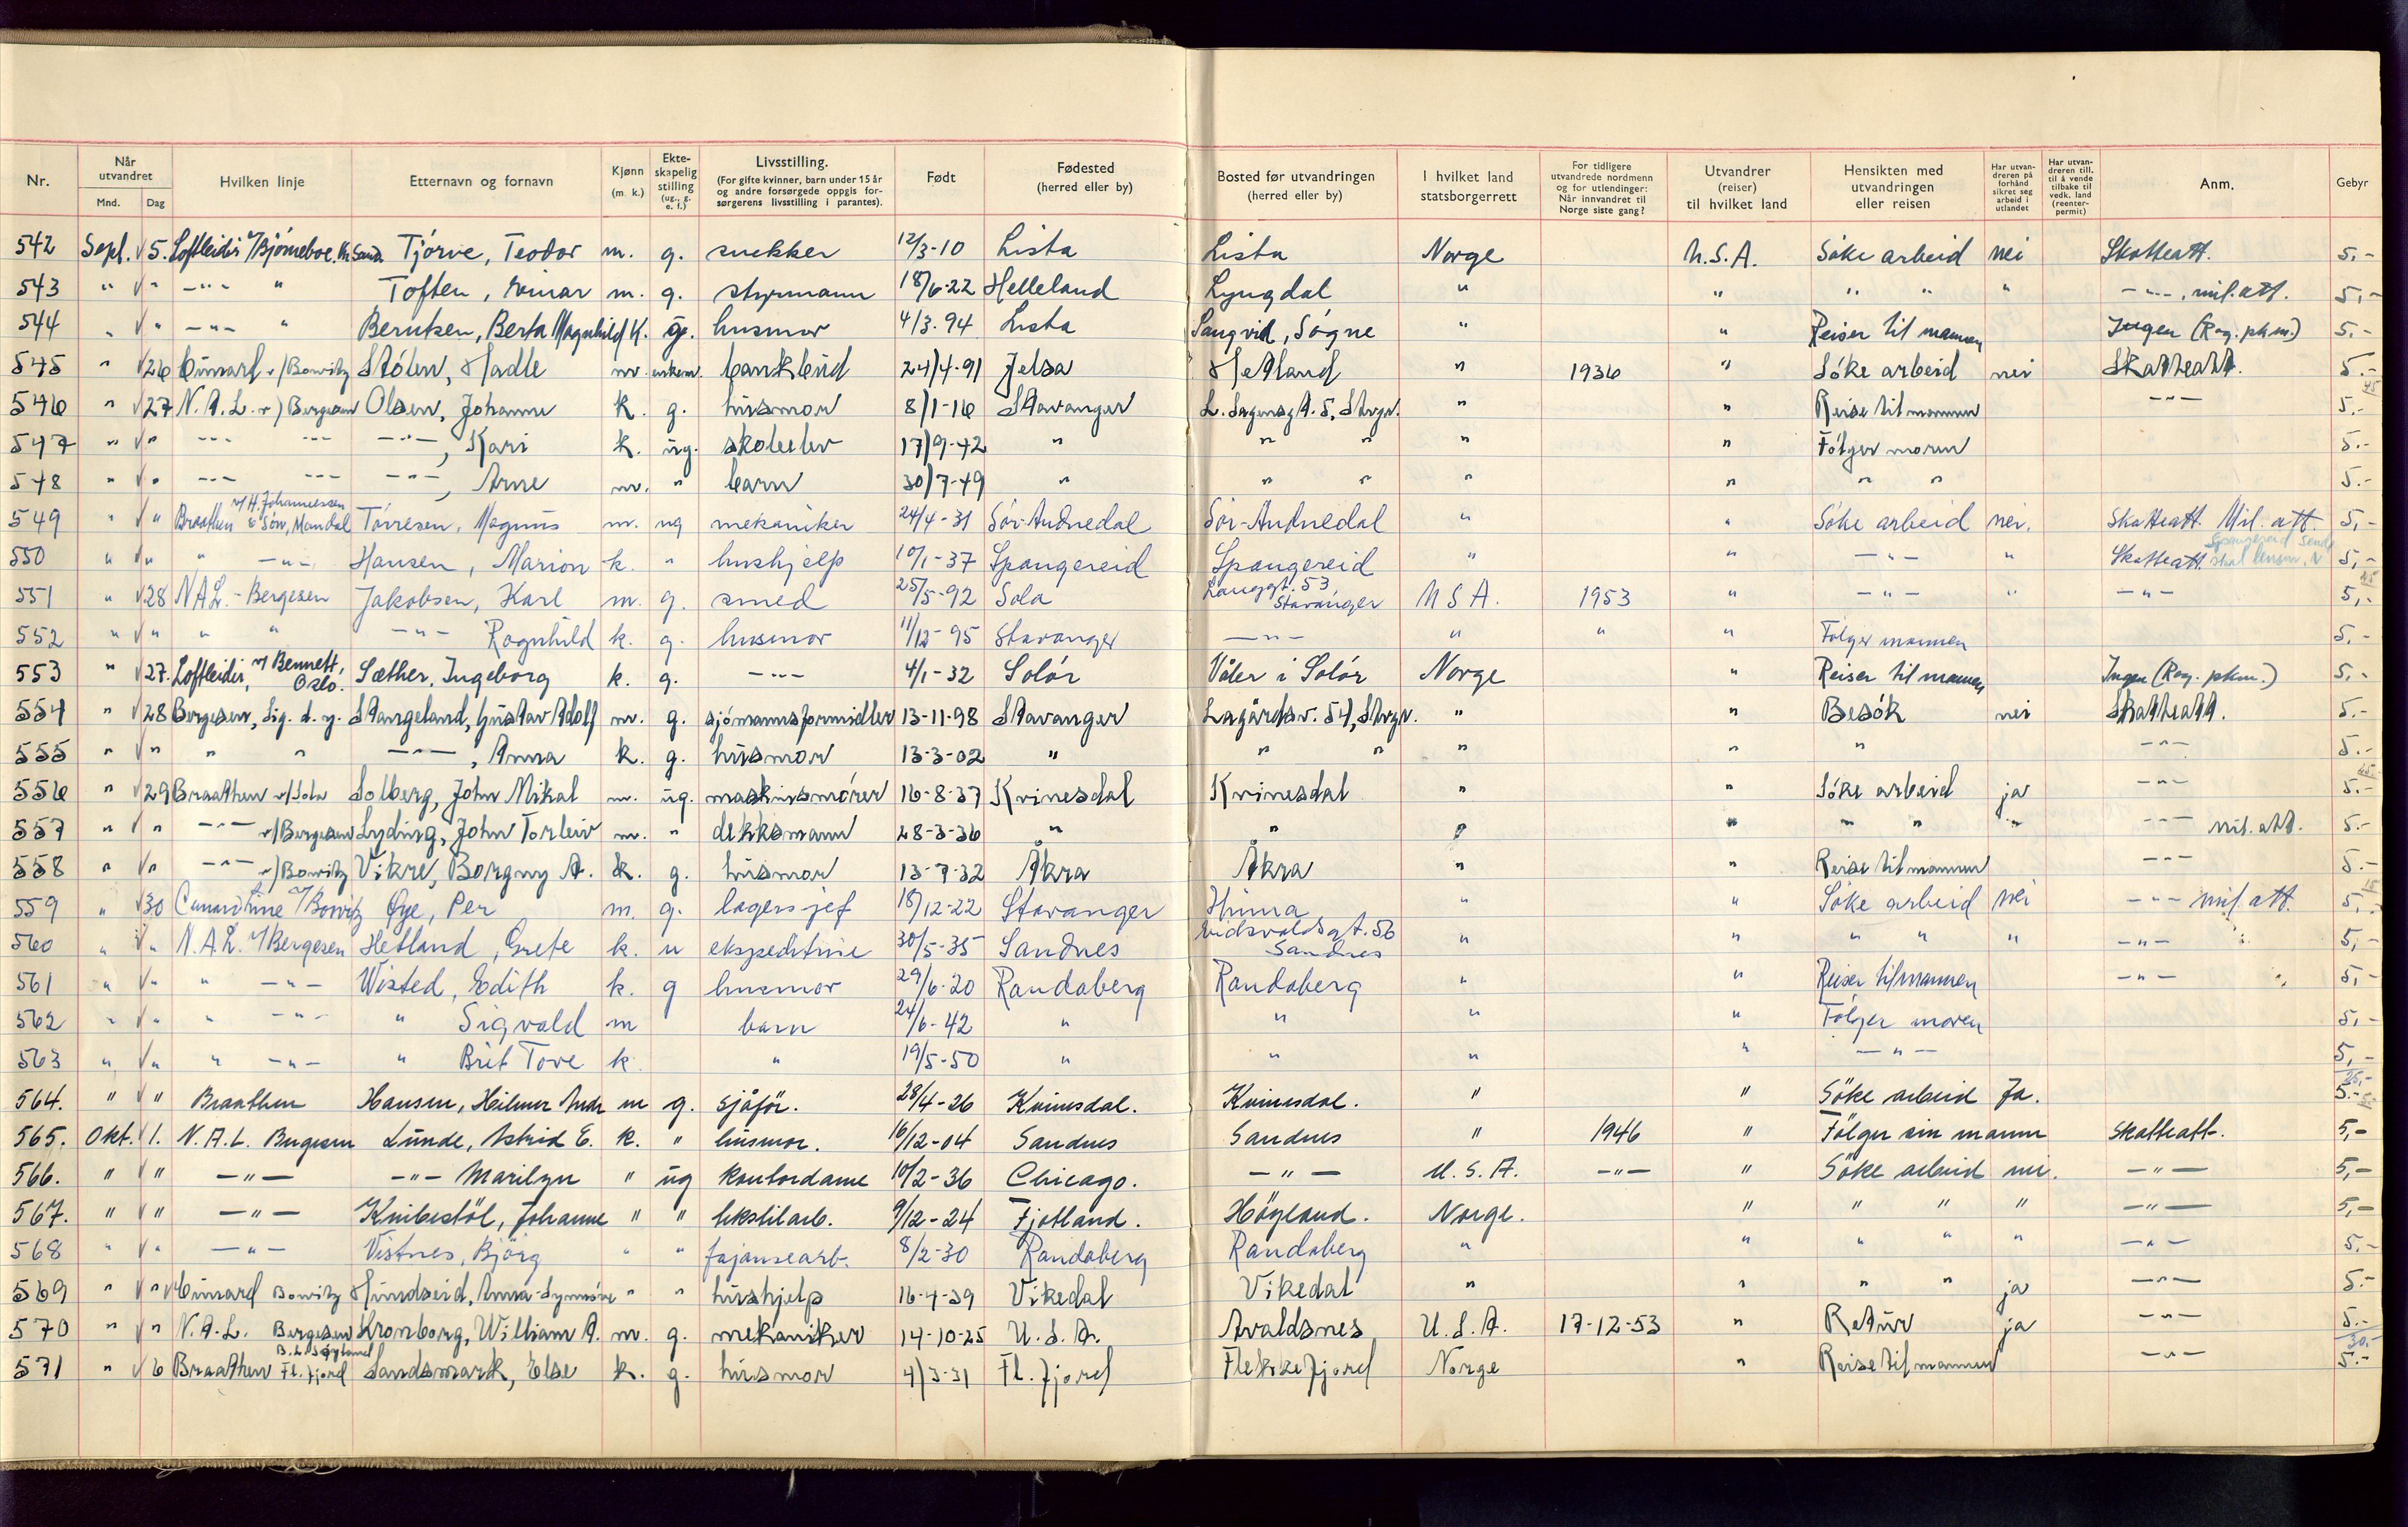 Nr. Når utvandret Mnd. Dag Hvilken linje Etternavn og fornavn Kjønn (m. k.) Ekteskapelig stilling (ug., g. e. f.) Livsstilling. (For gifte kvinner, barn under 15 år og andre forsørgede oppgis forsørgerens livsstilling i parantes). Født Fødested (herred eller by) Bosted før utvandringen (herred eller by) I hvilket land statsborgerrett For tidligere utvandrede nordmenn og for utlendinger: Når innvandret til Norge siste gang? Utvandrer (reiser) til hvilket land Hensikten med utvandringen eller reisen Har utvandreren på forhånd sikret seg arbeid i utlandet Har utvandreren till. til å vende tilbake til vedk. land (reenterpermit) Anm. Gebyr
542 Sept. √ 5. Loftleidir v/Bjørneboe. Kr.Sand. Tjörve, Teodor m. g. snekker 12/3-10 Lista Lista Norge U.S.A. Söke arbeid nei Skatteatt. 5,-
543 " √ " -"- " Toften, Einar m. g. styrmann 18/6-22 Helleland Lyngdal " " " " " -"-, mil.att. 5,-
544 " √ " -"- " Berntsen, Berta Magnhild K. g. husmor 4/3-94 Lista Langvid, Sögne " " Reiser til mannen Ingen (Rog. pkm.) 5.-
545 " √ 26 Cunard v/Bowitz Stölen, Hadle m. enkem. bankbud 24/4-91 Jelsa Hetland " 1936 " Söke arbeid nei Skatteatt. 5.-
546 " √ 27 N.A.L. v/Bergesen Olsen, Johanne k. g. husmor 8/1-16 Stavanger L. Sagensgt. 5, Stvgr. " " Reise til mannen -"- 5.-
547 " √ " -"- -"- -"-, Kari k. ug. skoleelev 17/9-42 " " " " " Følger moren 5.-
548 " √ " -"- -"- -"-, Arne m. " barn 30/7-49 " " " " " " " 5.-
549 " √ " Braathen v/H. Johannessen & Søn, Mandal Törresen, Magnus m. ug mekaniker 24/4-31 Sör-Audnedal Sör-Audnedal " " Söke arbeid nei. Skatteatt. Mil. att. 5,-
550 " √ " " -"- Hansen, Marion k. " hushjelp 10/1-37 Spangereid Spangereid " " -"- " Skatteatt. 5,-
551 " √ 28 NAL. - Bergesen Jakobsen, Karl m. g. smed 25/5-92 Sola Langgt. 53 Stavanger U S A. 1953 " -"- " -"- 5,-
552 " √ " " " -"- Ragnhild k. g. husmor 11/12-95 Stavanger -"- " " " Følger mannen 5.-
553 " √ 27. Loftleidir, v/ Bennett, Oslo. Sæther, Ingeborg k. g. -"- 4/1-32 Solör Våler i Solör Norge " Reiser til mannen Ingen (Rog. pkm.) 5,-
554 " √ 28 Bergesen, Sig. d. y. Stangeland, Gustav Adolf m. g. sjömannsformidler 13-11-98 Stavanger Lagårdsv. 54, Stvgr. " " Besök nei Skatteatt. 5.-
555 " √ " " " -"-, Anna k. g. husmor 13-3-02 " " " " " " -"- 5.-
556 " √ 29 Braathen v/Sola Solberg, John Mikal m. ug. maskinsmörer 16-8-37 Kvinesdal Kvinesdal " " Söke arbeid ja -"- 5.-
557 " √ " -"- v/Bergesen Lyding, John Torleiv m. " dekksmann 28-3-36 " " " " " " " -"- mil. att. 5.-
558 " √ " -"- v/Bowitz Vikre, Borgny A. k. g. husmor 13-7-32 Åkra Åkra " " Reise til mannen -"- 5.-
559 " √ 30 Cunard Line v/Bowitz Øye, Per m. g. lagersjef 18/12-22 Stavanger Hinna " " Söke arbeid nei -"- mil. att. 5,-
560 " √ " N.A.L. v/Bergesen Hetland, Grete k. u ekspeditrise 30/5-35 Sandnes Eidsvoldsgt. 56 Sandnes " " " " " -"- 5,-
561 " √ " " -"- Wisted, Edith k. g husmor 29/6-20 Randaberg Randaberg " " Reiser til mannen -"- 5,-
562 " √ " " -"- " Sigvald m barn 24/6-42 " " " " Følger moren 5,-
563 " √ " " -"- " Brit Tove k. " 19/5-50 " " " " -"- 5,-
564. " √ " Braathen Hansen, Hilmer Andr m g. sjåför. 28/4-26 Kvinesdal. Kvinesdal. " " Söke arbeid Ja. 5.-
565. Okt. √ 1. N.A.L. Bergesen Lunde, Astrid E. k. " husmor. 16/12-04 Sandnes Sandnes " 1946 " Fölger sin mann Skatteatt. 5,-
566. " √ " -"- -"- Marilyn " ug kontordame 10/2-36 Chicago. -"- U.S.A. -"- " Söke arbeid nei. -"- 5,-
567. " √ " -"- Knibestöl, Johanne " " tekstilarb. 9/12-24 Fjotland. Högeland. Norge. " " " " -"- 5,-
568 " √ " -"- Vistnes, Björg " " fajansearb. 8/2-30 Randaberg Randaberg " " " " " -"- 5.-
569 " √ " Cunard Bowitz Hundseid, Anna-Synnöve " " hushjelp 16-4-39 Vikedal Vikedal " " " " ja -"- 5.-
570 " √ " N.A.L. Bergesen Kronborg, William A. m. g. mekaniker 14-10-25 U.S.A. Avaldsnes U.S.A. 17-12-53 " Retur ja -"- 5.-
571 " √ 6 Braathen Fl.fjord Sandsmark, Else k. g. husmor 4/3-31 Fl.fjord Flekkefjord Norge " Reise til mannen -"- 5.-